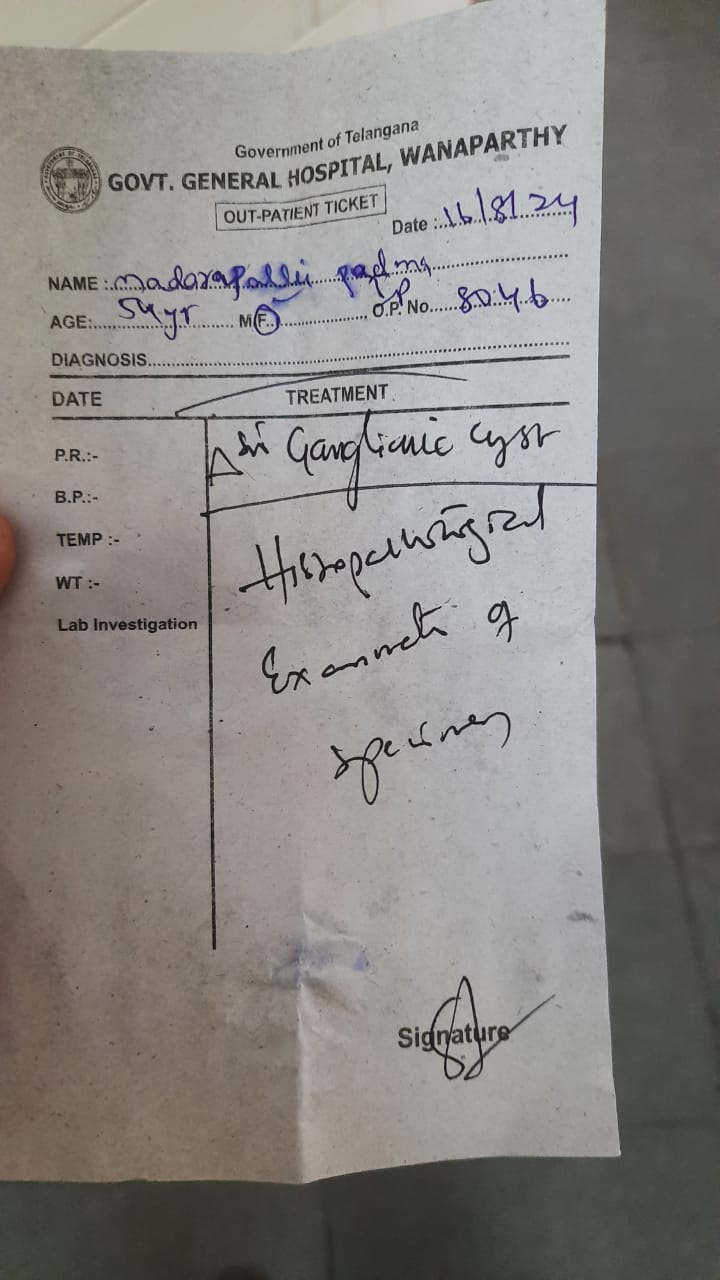 Government of Telangana
GOVT. GENERAL HOSPITAL, WANAPARTHY
OUT-PATIENT TICKET
Date : 16/8/24
NAME : padma
AGE: 54yr M F O.P. No. 8046
IP
DIAGNOSIS
DATE TREATMENT
P.R.:- Δ Ganglionic cyst
B.P.:-
TEMP :- Histopathological
WT :-
Lab Investigation Examinati of
specimen
Signature